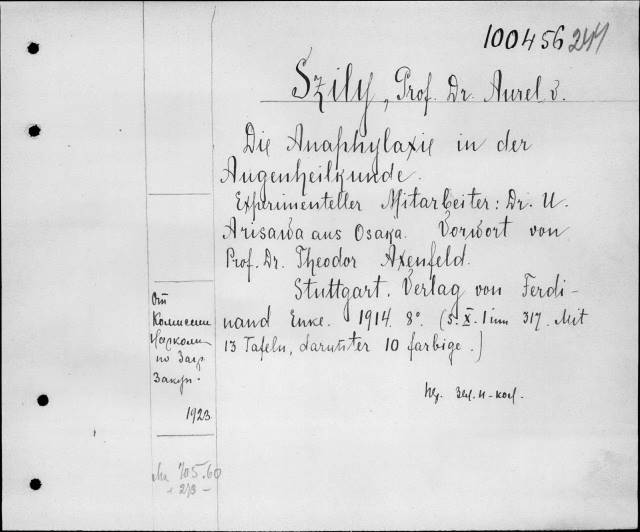 100456 244
Szily, Prof. Dr. Aurel v.
Die Anaphylaxie in der
Augenheilkunde.
Experimenteller Mitarbeiter: Dr. U.
Arisawa aus Osaka. Vorwort von
Prof. Dr. Theodor Axenfeld.
Stuttgart. Verlag von Ferdi-
nand Enke. 1914. 8°. (5. X. 1 inn 317. Mit
13 Tafeln, darunter 10 farbige.)
От
Комиссии
Наркоми
по Загр
Закуп.
1923
705.60